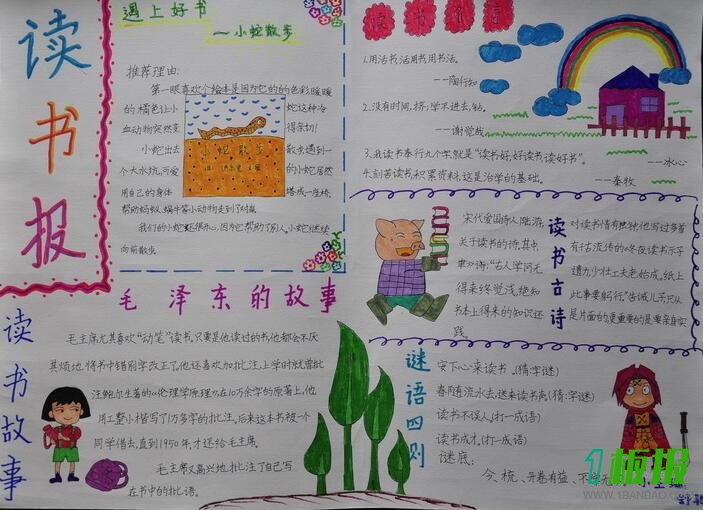 读书报
遇上好书
——小蛇散步
推荐理由:
第一眼喜欢个绘本是因为它的的色彩,暖暖
的橘色让小蛇这种冷
血动物突然变得亲切!
小蛇出去散步遇到一
个大水坑,可爱的小蛇居然
用自己的身体搭成一座桥,
帮助蚂蚁、蜗牛等小动物走到了对岸
我们的小蛇还很开心,因为它帮助了别人。小蛇继续
向前散步。
小蛇散步
读书
1.用活书,活用书,用书法。
——陶行知
2.没有时间,挤;学不进去,钻。
——谢觉哉
3.我读书奉行九个字,就是“读书好,好读书,读好书”。
——冰心
4.刻苦读书,积累资料,这是治学的基础。
——秦牧
读书古诗
宋代爱国诗人陆游,
关于读书的诗,其中
“古人学问无
得来终觉浅,绝知
书本上得来的知识还
践。
对读书情有独钟,他写过多首
有千古流传的《冬夜读书示子
遗力,少壮工夫老始成。纸上
此事要躬行。”告诫儿子只从
是片面的,更重要的是要亲自实
毛泽东的故事
读书故事
毛主席尤其喜欢“动笔”读书。只要是他读过的书他都会不厌
其烦地将书中错别字改正了。他还喜欢加批注,上学时就曾批
注鲍尔生著的《伦理学原理》,在10万余字的原著上,他
用工整小楷写了1万多字的批注。后来这本书被一个
同学借去,直到1950年,才还给毛主席。
毛主席又高兴地批注了自己写
在书中的批语。
谜语四则
安下心来读书。(猜字谜)
春随流水去,送来读书声(猜字谜)
读书不误人(打一成语)
读书成才(打一成语)
谜底:
今、梳、开卷有益、不学无
1板报
WWW.1BANBAO.COM